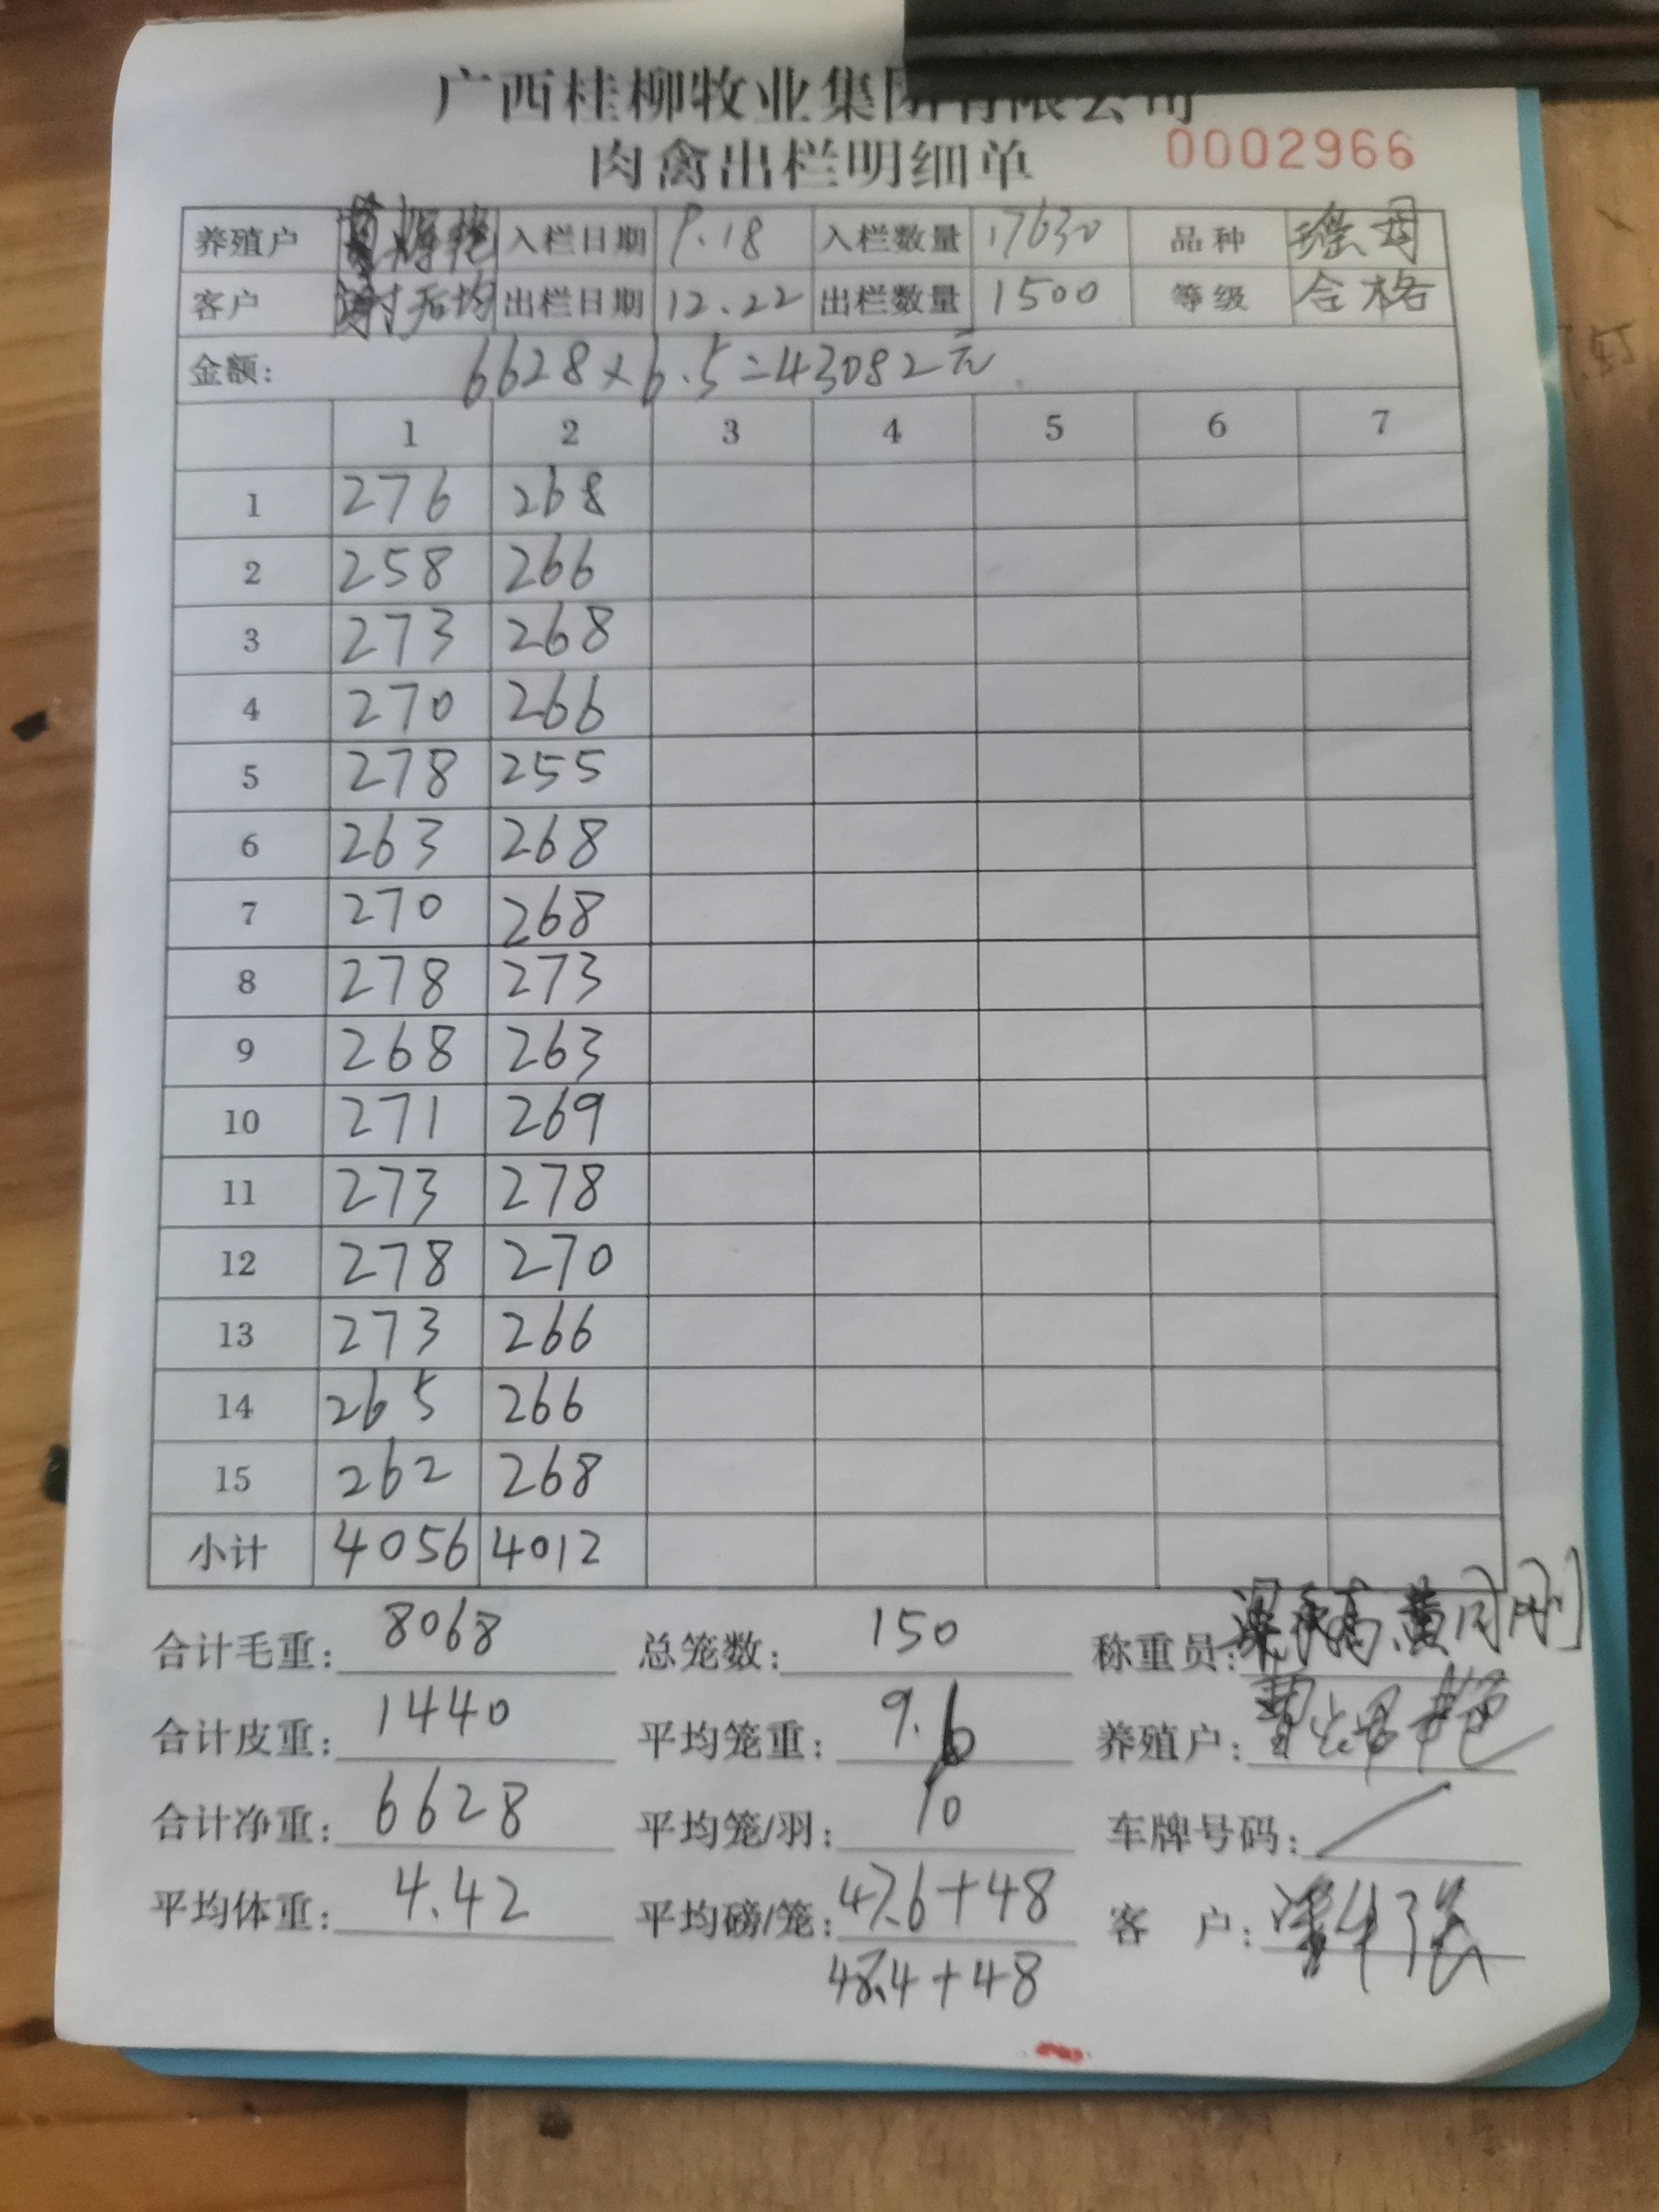 广西桂柳牧业集团有限公司
肉禽出栏明细单 0002966
养殖户 入栏日期 9.18 入栏数量 17630 品种
客户 出栏日期 12.22 出栏数量 1500 等级 合格
金额: 6628×6.5=43082元
1 2 3 4 5 6 7
1 276 268
2 258 266
3 273 268
4 270 266
5 278 255
6 263 268
7 270 268
8 278 273
9 268 263
10 271 269
11 273 278
12 278 270
13 273 266
14 265 266
15 262 268
小计 4056 4012
合计毛重: 8068 总笼数: 150 称重员:
合计皮重: 1440 平均笼重: 9.6 养殖户:
合计净重: 6628 平均笼/羽: 10 车牌号码: /
平均体重: 4.42 平均磅/笼: 47.6+48 客 户:
48.4+48